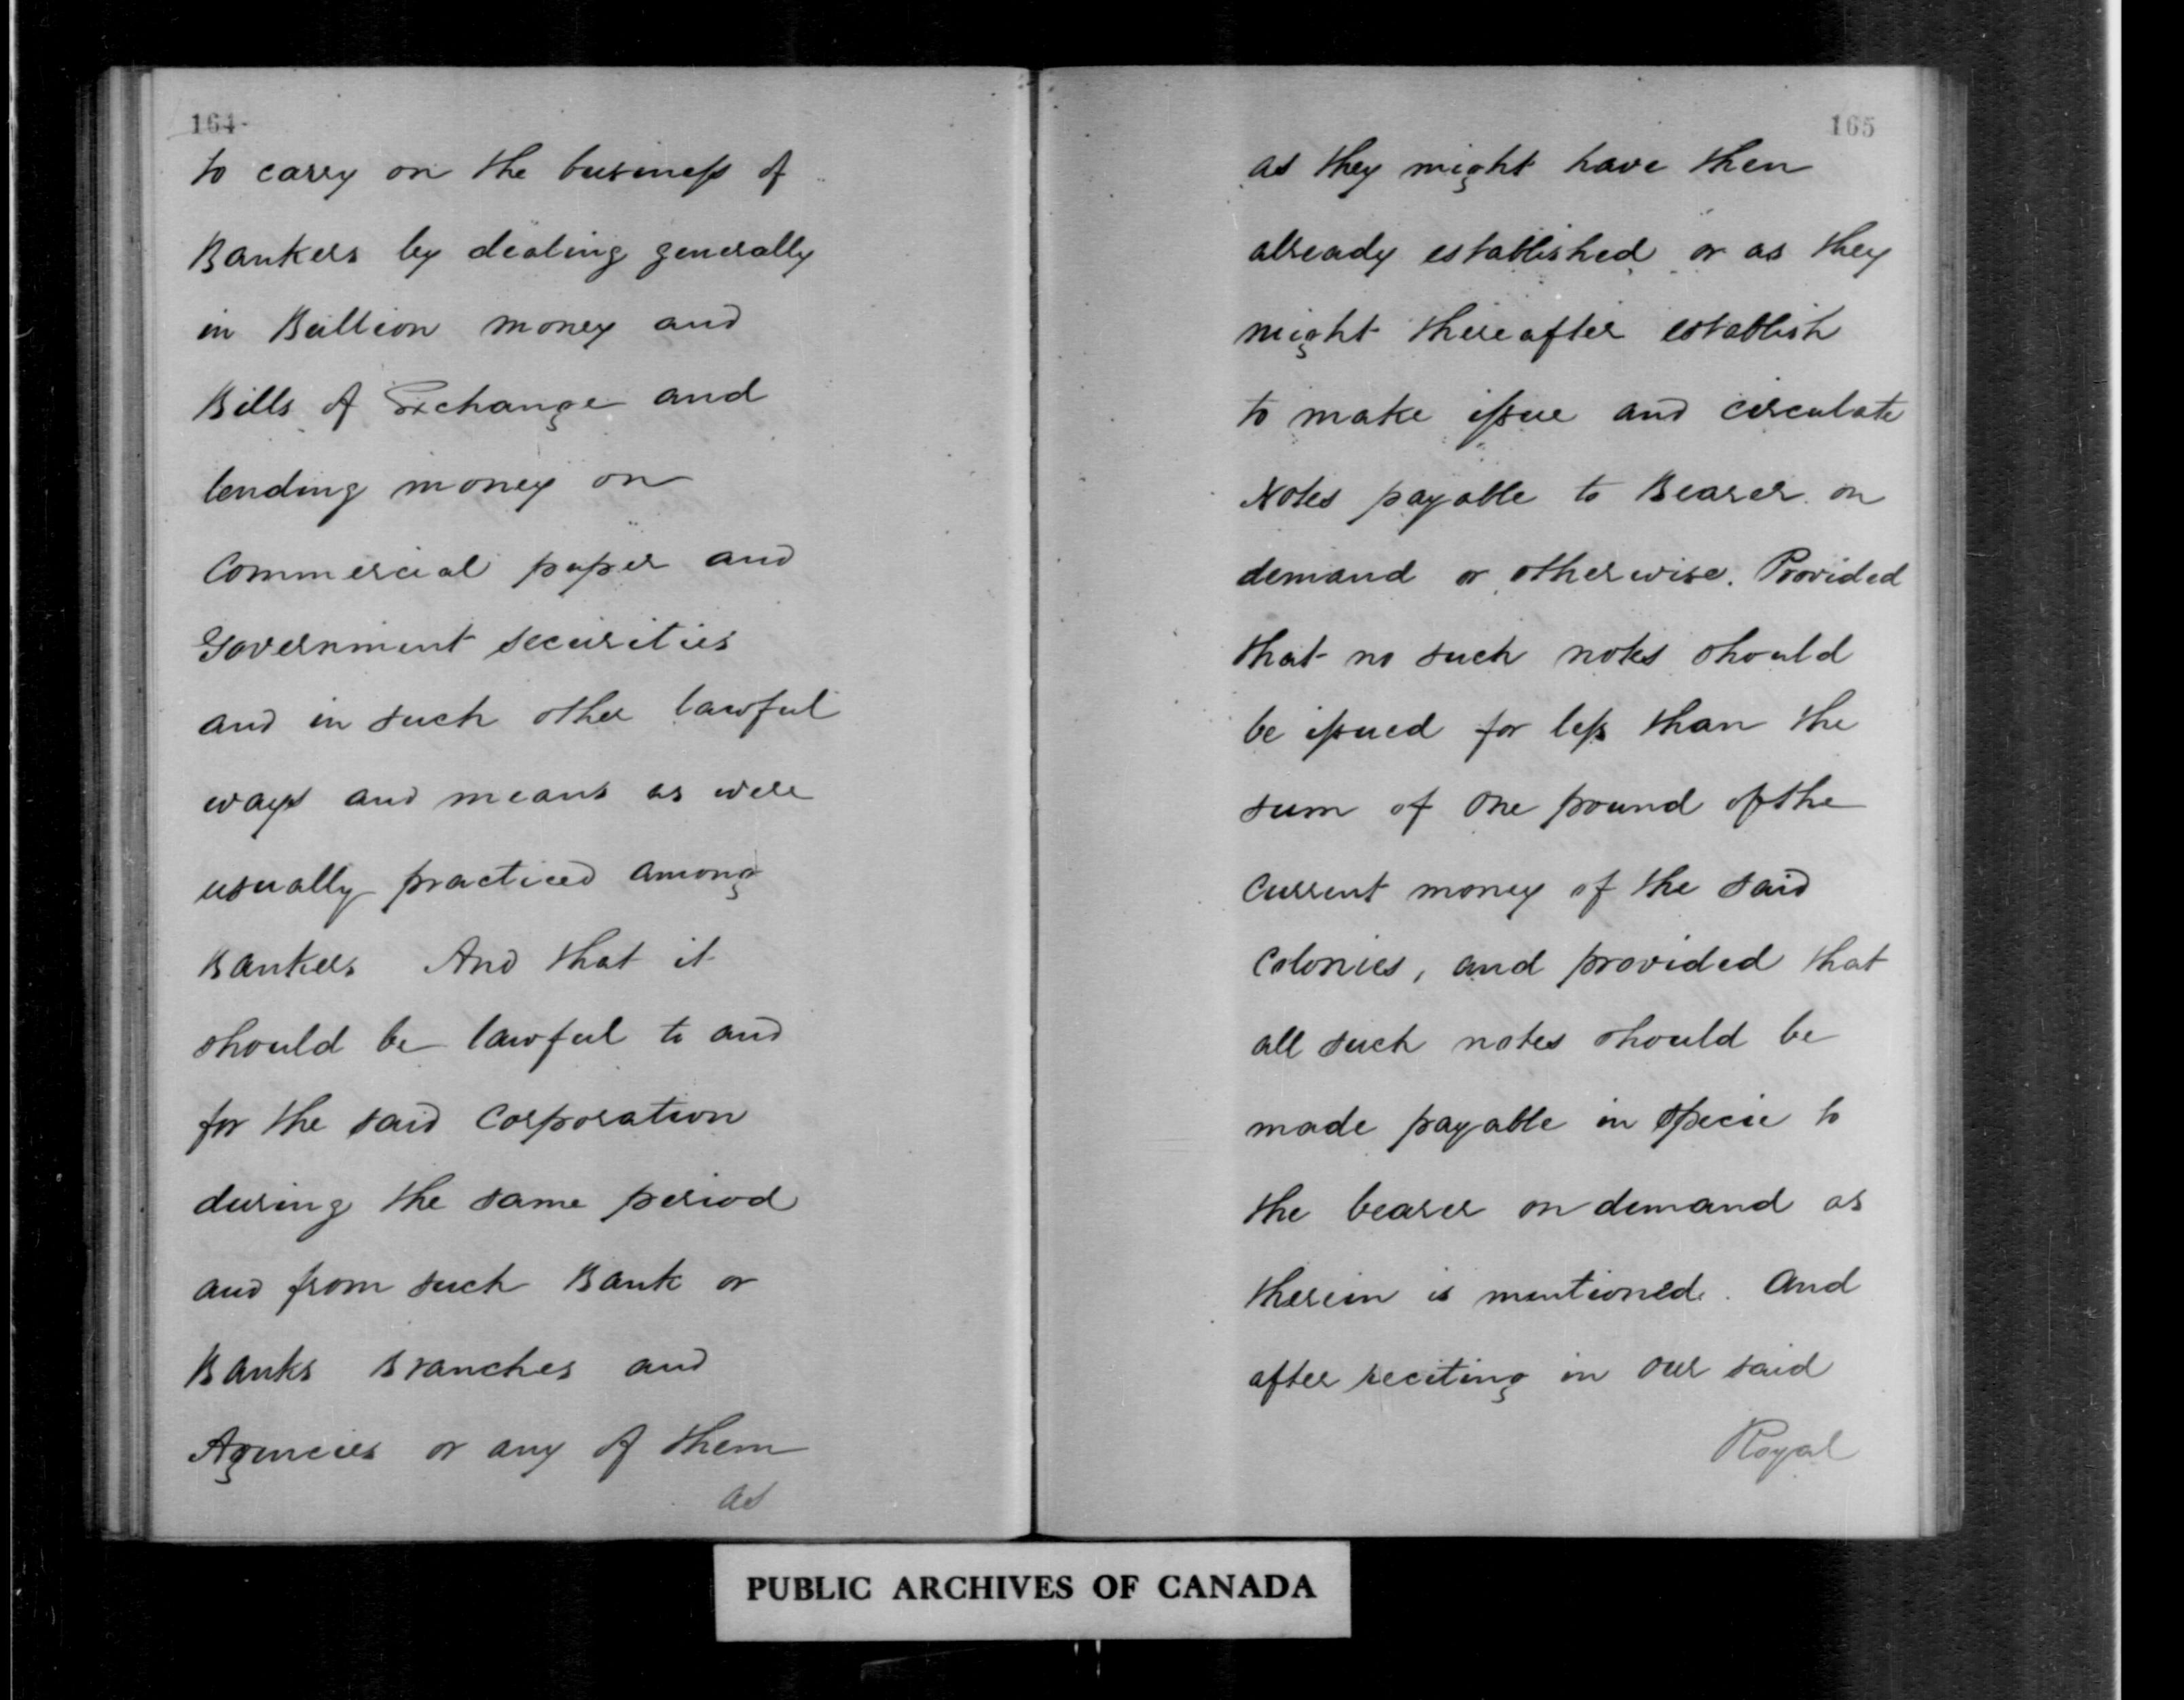 164
to carry on the business of
Bankers by dealing generally
in Bullion money and
Bills of Exchange and
lending money on
Commercial paper and
Government securities
and in such other lawful
ways and means as were
usually practiced among
Bankers And that it
should be lawful to and
for the said Corporation
during the same period
and from such Bank or
Banks Branches and
Agencies or any of them
as
165
as they might have then
already established or as they
might thereafter establish
to make issue and circulate
Notes payable to Bearer on
demand or otherwise. Provided
that no such notes should
be issued for less than the
sum of One pound of the
Current money of the said
Colonies, and provided that
all such notes should be
made payable in Specie to
the bearer on demand as
therein is mentioned. And
after reciting in Our said
Royal
PUBLIC ARCHIVES OF CANADA